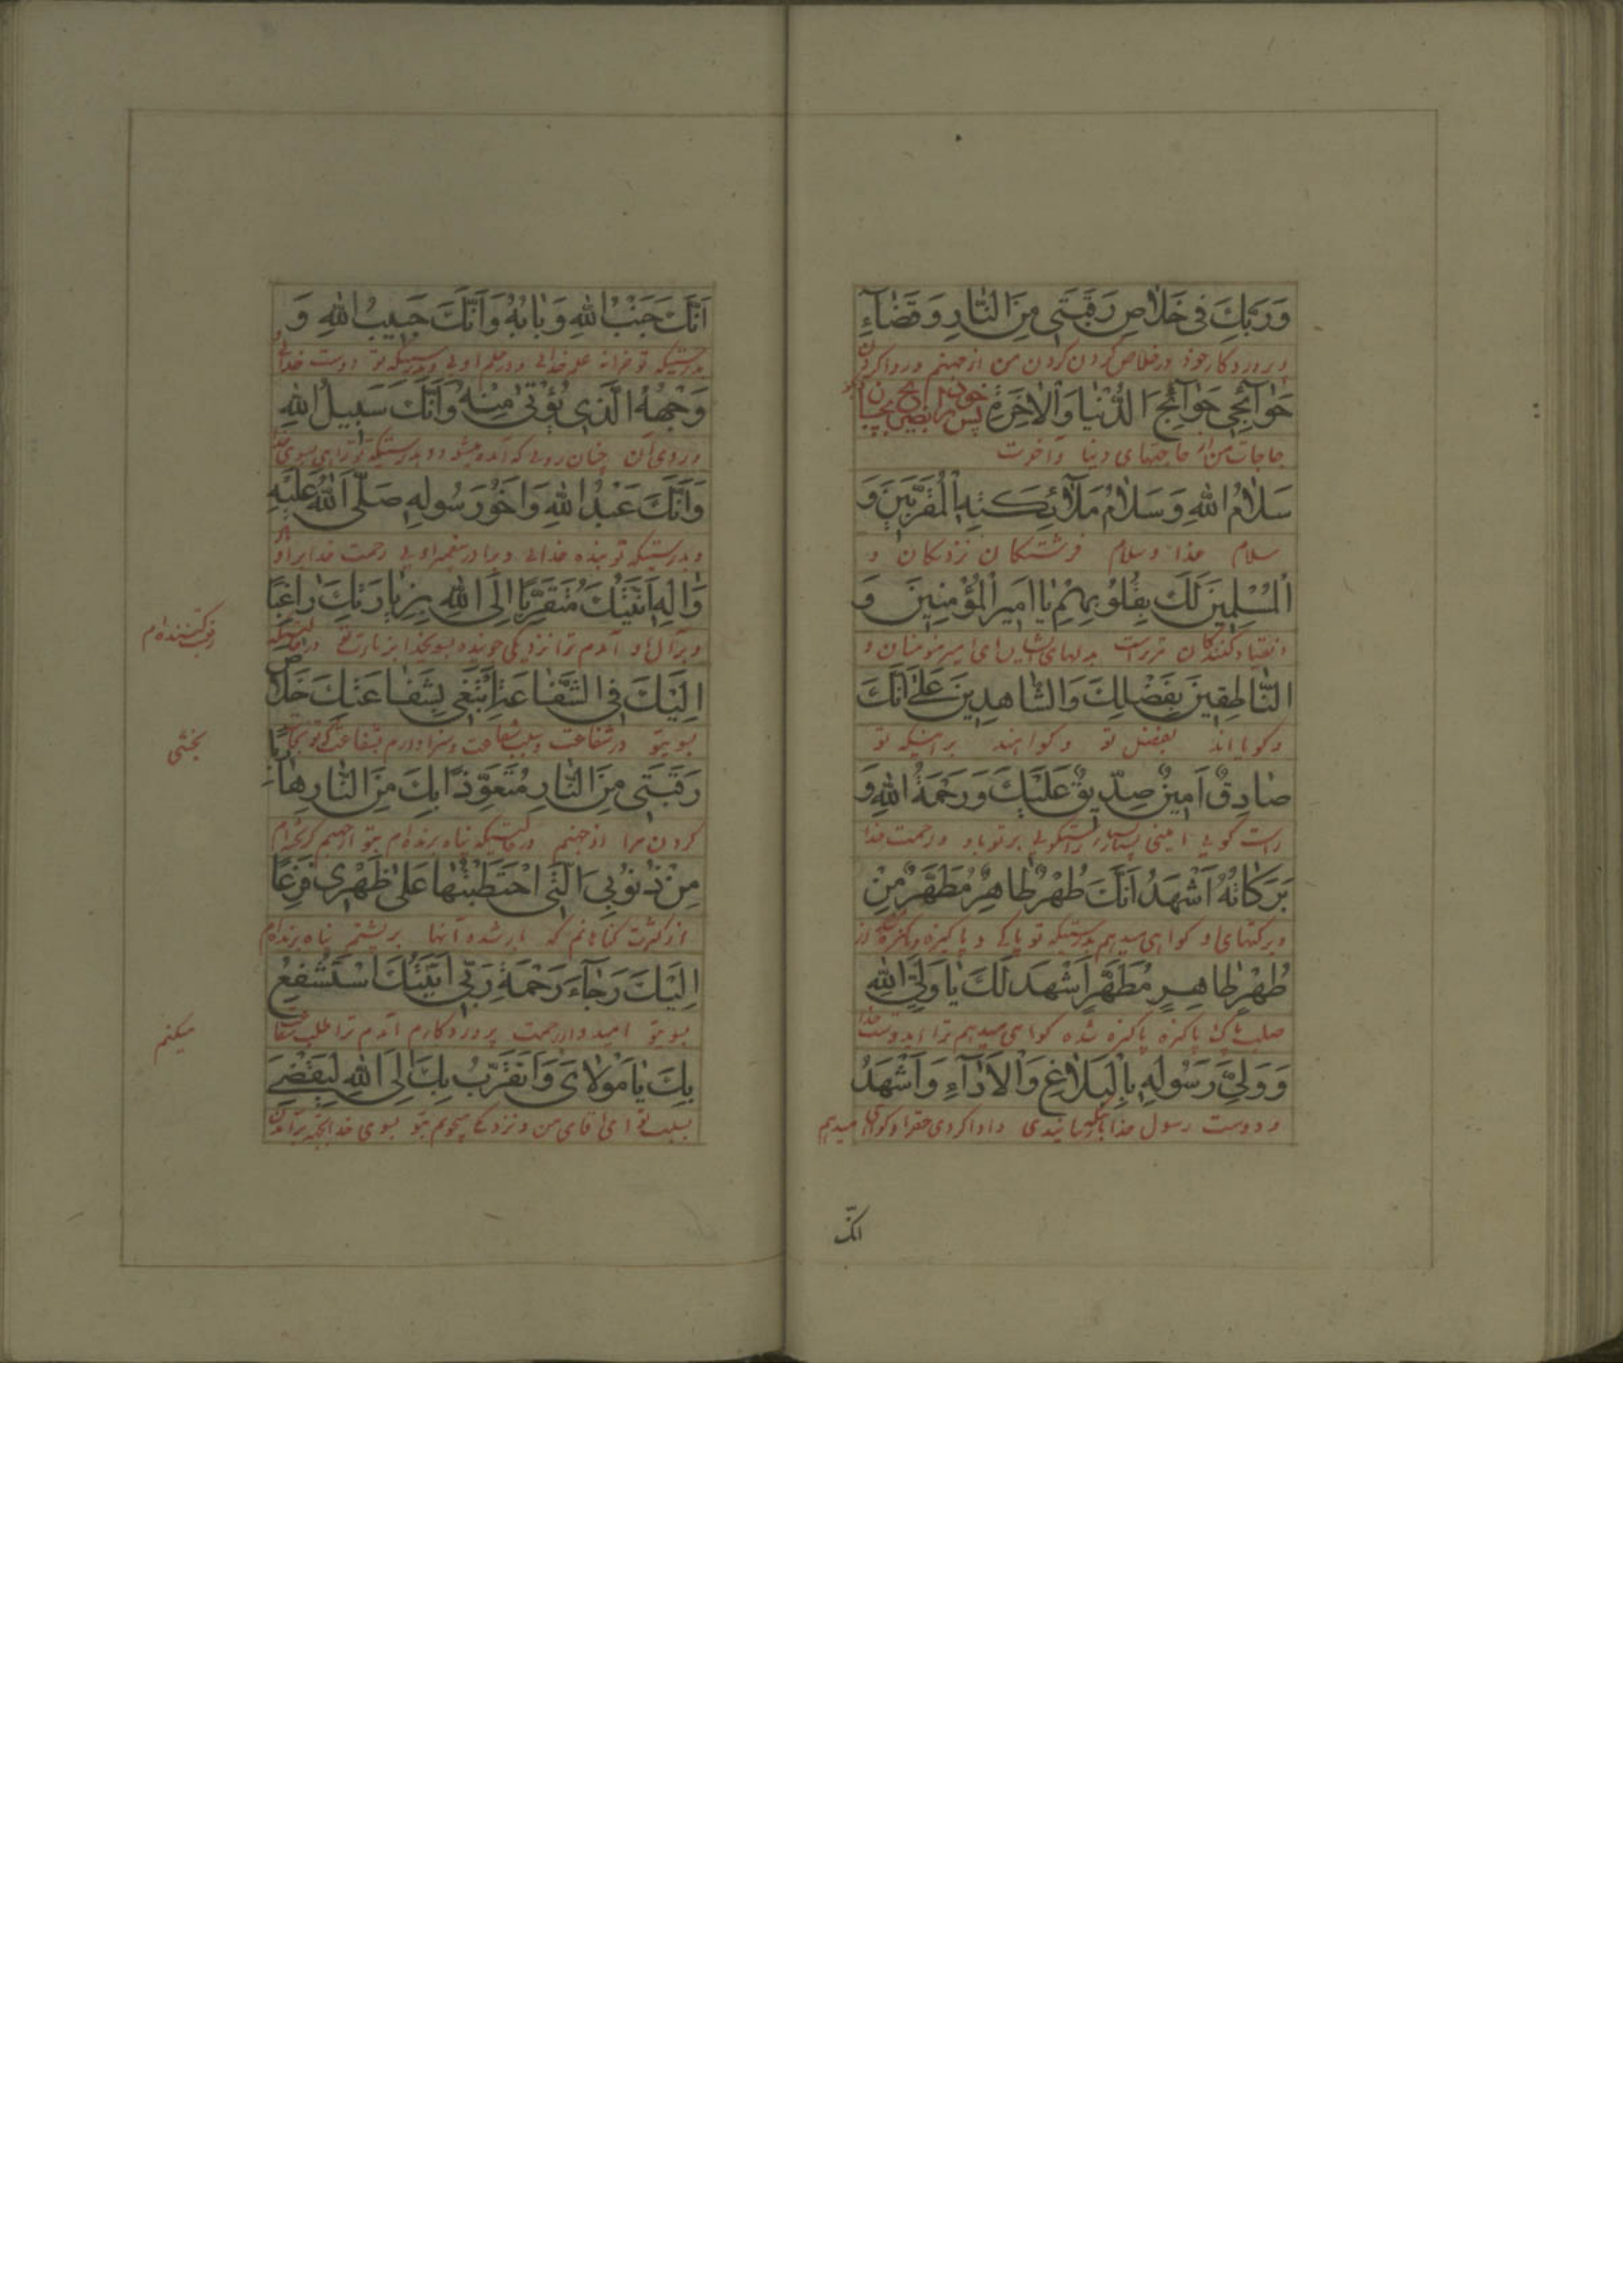 وَرَبِّكَ فِي خَلاٰصِ رَقَبَتِي مِنَ النّٰارِ وَقَضٰآءِ
و پروردگار خود در خلاص کردن گردن من از جهنم و روا کردن
حَوٰآئِجِي حَوٰآئِجِ الدُّنْيٰا وَالْاٰخِرَةِ پس
حاجات من از حاجتهای دنیا و آخرت
سَلاٰمُ اللهِ وَسَلاٰمُ مَلاٰئِكَتِهِ الْمُقَرَّبِينَ وَ
سلام خدا و سلام فرشتگان نزدیکان و
الْمُسَلِّمِينَ لَكَ بِقُلُوبِهِمْ يٰا اَمِيرَ الْمُؤْمِنِينَ وَ
انقیاد کنندگان مر تراست بدلهای ایشان ای امیر مومنان و
النّٰاطِقِينَ بِفَضْلِكَ وَالشّٰاهِدِينَ عَلىٰ اَنَّكَ
و گویااند بفضل تو و گواهند بر اینکه تو
صٰادِقٌ اَمِينٌ صِدِّيقٌ عَلَيْكَ وَرَحْمَةُ اللهِ وَ
راست گویی امینی بسیار راستگویی بر تو باد و رحمت خدا
بَرَكٰاتُهُ اَشْهَدُ اَنَّكَ طُهْرٌ طٰاهِرٌ مُطَهَّرٌ مِنْ
و برکتهای او گواهی میدهم بدرستیکه تو پاکی و پاکیزه از
طُهْرٍ طٰاهِرٍ مُطَهَّرٍ اَشْهَدُ لَكَ يٰا وَلِيَّ اللهِ
صلب پاک پاکیزه پاکیزه شده گواهی میدهم ترا ای دوست خدا
وَ وَلِيَّ رَسُولِهِ بِالْبَلاٰغِ وَالْاَدٰآءِ وَاَشْهَدُ
و دوست رسول خدا و ادا کردی حقرا و گواهی میدهم
انّک
اَنَّكَ جَنْبُ اللهِ وَبٰابُهُ وَاَنَّكَ حَبِيبُ اللهِ وَ
بدرستیکه تو خزانه علم خدایی و در علم اویی و بدرستیکه تو دوست خدایی
وَجْهُهُ الَّذِي يُؤْتىٰ مِنْهُ وَاَنَّكَ سَبِيلُ اللهِ
و روی آن چنان رویی که آمده میشود و بدرستیکه تو راهی بسوی خدا
وَاَنَّكَ عَبْدُ اللهِ وَاَخُو رَسُولِهِ صَلَّى اللهُ عَلَيْهِ
و بدرستیکه تو بنده خدایی و برادر پیغمبر اویی رحمت خدا بر او
وَاٰلِهِ اَتَيْتُكَ مُتَقَرِّبًا اِلَى اللهِ بِزِيٰارَتِكَ رٰاغِبًا
و بر آل او آمدم ترا نزدیکی جوینده بسوی خدا بزیارت تو در حالتیکه
رغبت کننده‌ام
اِلَيْكَ فِي الشَّفٰاعَةِ اَبْتَغِي بِشَفٰاعَتِكَ خَلاٰصَ
بسوی تو در شفاعت
بخشی
رَقَبَتِي مِنَ النّٰارِ مُتَعَوِّذًا بِكَ مِنَ النّٰارِ هٰارِبًا
گردن مرا از جهنم در حالتیکه پناه برنده‌ام بتو از جهنم گریخته‌ام
مِنْ ذُنُوبِيَ الَّتِي احْتَطَبْتُهٰا عَلىٰ ظَهْرِي فَزِعًا
از کثرت گناهانم که بار شده آنها بر پشتم پناه برنده‌ام
اِلَيْكَ رَجٰآءَ رَحْمَةِ رَبِّي اَتَيْتُكَ اَسْتَشْفِعُ
بسوی تو امیدوار رحمت پروردگارم آمدم ترا طلب شفاعت
میکنم
بِكَ يٰا مَوْلاٰيَ وَاَتَقَرَّبُ بِكَ اِلَى اللهِ لِيَقْضِيَ
بسبب تو ای آقای من و نزدیکی میجویم بتو بسوی خدا